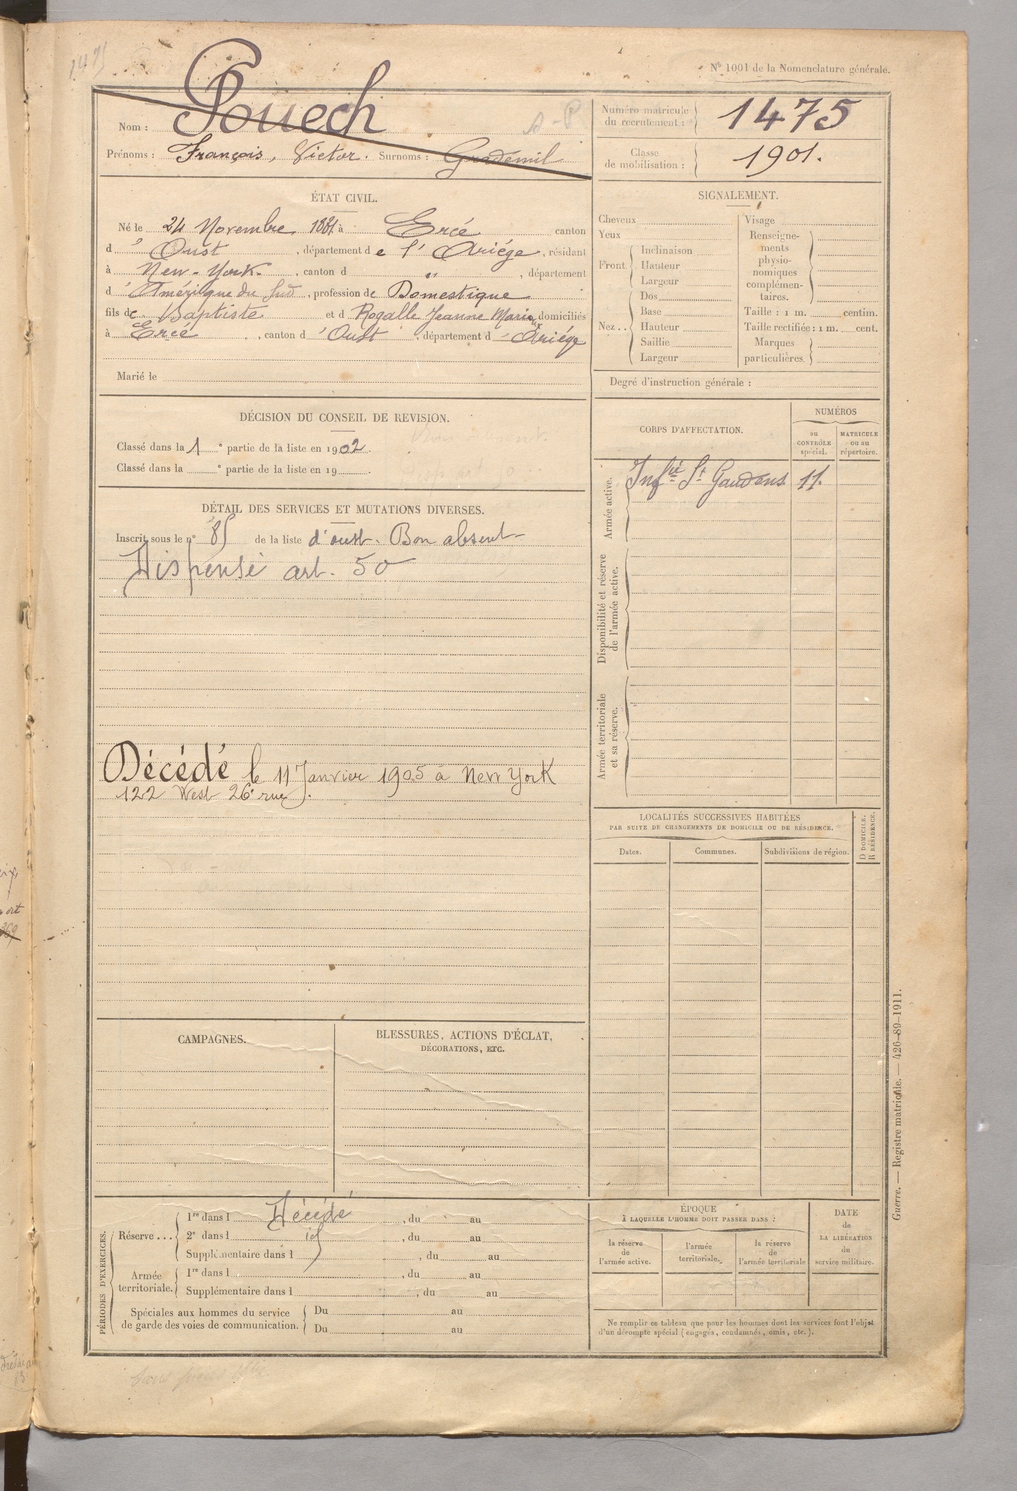 1475
Nº 1001 de la Nomenclature générale.
Nom : Pouech
A-P
Prénoms : François, Victor. Surnoms : Gradémil
Numéro matricule du recrutement : 1475
Classe de mobilisation : 1901.
ÉTAT CIVIL.
Né le 24 Novembre 1881 à Ercé canton
d' Oust, département de l'Ariége, résidant
à New-York, canton d " , département
d'Amérique du Sud, profession de Domestique
fils de Baptiste et d Rogalle Jeanne Marie domiciliés
à Ercé, canton d'Oust, département d' Ariége
Marié le
SIGNALEMENT.
Cheveux
Yeux
Front
Inclinaison
Hauteur
Largeur
Nez..
Dos
Base
Hauteur
Saillie
Largeur
Visage
Renseigne-
ments
physio-
nomiques
complémen-
taires.
Taille : 1 m. centim.
Taille rectifiée : 1 m. cent.
Marques
particulières.
Degré d'instruction générale :
DÉCISION DU CONSEIL DE REVISION.
Classé dans la 1 e partie de la liste en 1902.
Classé dans la e partie de la liste en 19
DÉTAIL DES SERVICES ET MUTATIONS DIVERSES.
Inscrit sous le nº 85 de la liste d'oust. Bon absent
Dispensé art. 50
Décédé le 11 Janvier 1905 à New York
122 West 26e rue.
CORPS D'AFFECTATION.
NUMÉROS
au
CONTRÔLE
spécial.
MATRICULE
ou au
répertoire.
Armée active.
Infie St Gaudens 11.
Disponibilité et réserve
de l'armée active.
Armée territoriale
et sa réserve.
LOCALITÉS SUCCESSIVES HABITÉES
PAR SUITE DE CHANGEMENTS DE DOMICILE OU DE RÉSIDENCE.
D DOMICILE.
R RÉSIDENCE.
Dates.
Communes.
Subdivisions de région.
CAMPAGNES.
BLESSURES, ACTIONS D'ÉCLAT,
DÉCORATIONS, ETC.
PÉRIODES D'EXERCICES.
Réserve...
1re dans l Décédé , du au
2e dans l id , du au
Supplémentaire dans l , du au
Armée
territoriale.
1re dans l , du au
Supplémentaire dans l , du au
Spéciales aux hommes du service
de garde des voies de communication.
Du au
Du au
ÉPOQUE
À LAQUELLE L'HOMME DOIT PASSER DANS :
la réserve
de
l'armée active.
l'armée
territoriale.
la réserve
de
l'armée territoriale
DATE
de
LA LIBÉRATION
du
service militaire.
Ne remplir ce tableau que pour les hommes dont les services font l'objet
d'un décompte spécial (engagés, condamnés, omis, etc.).
Guerre. — Registre matricule. — 426-89-1911.